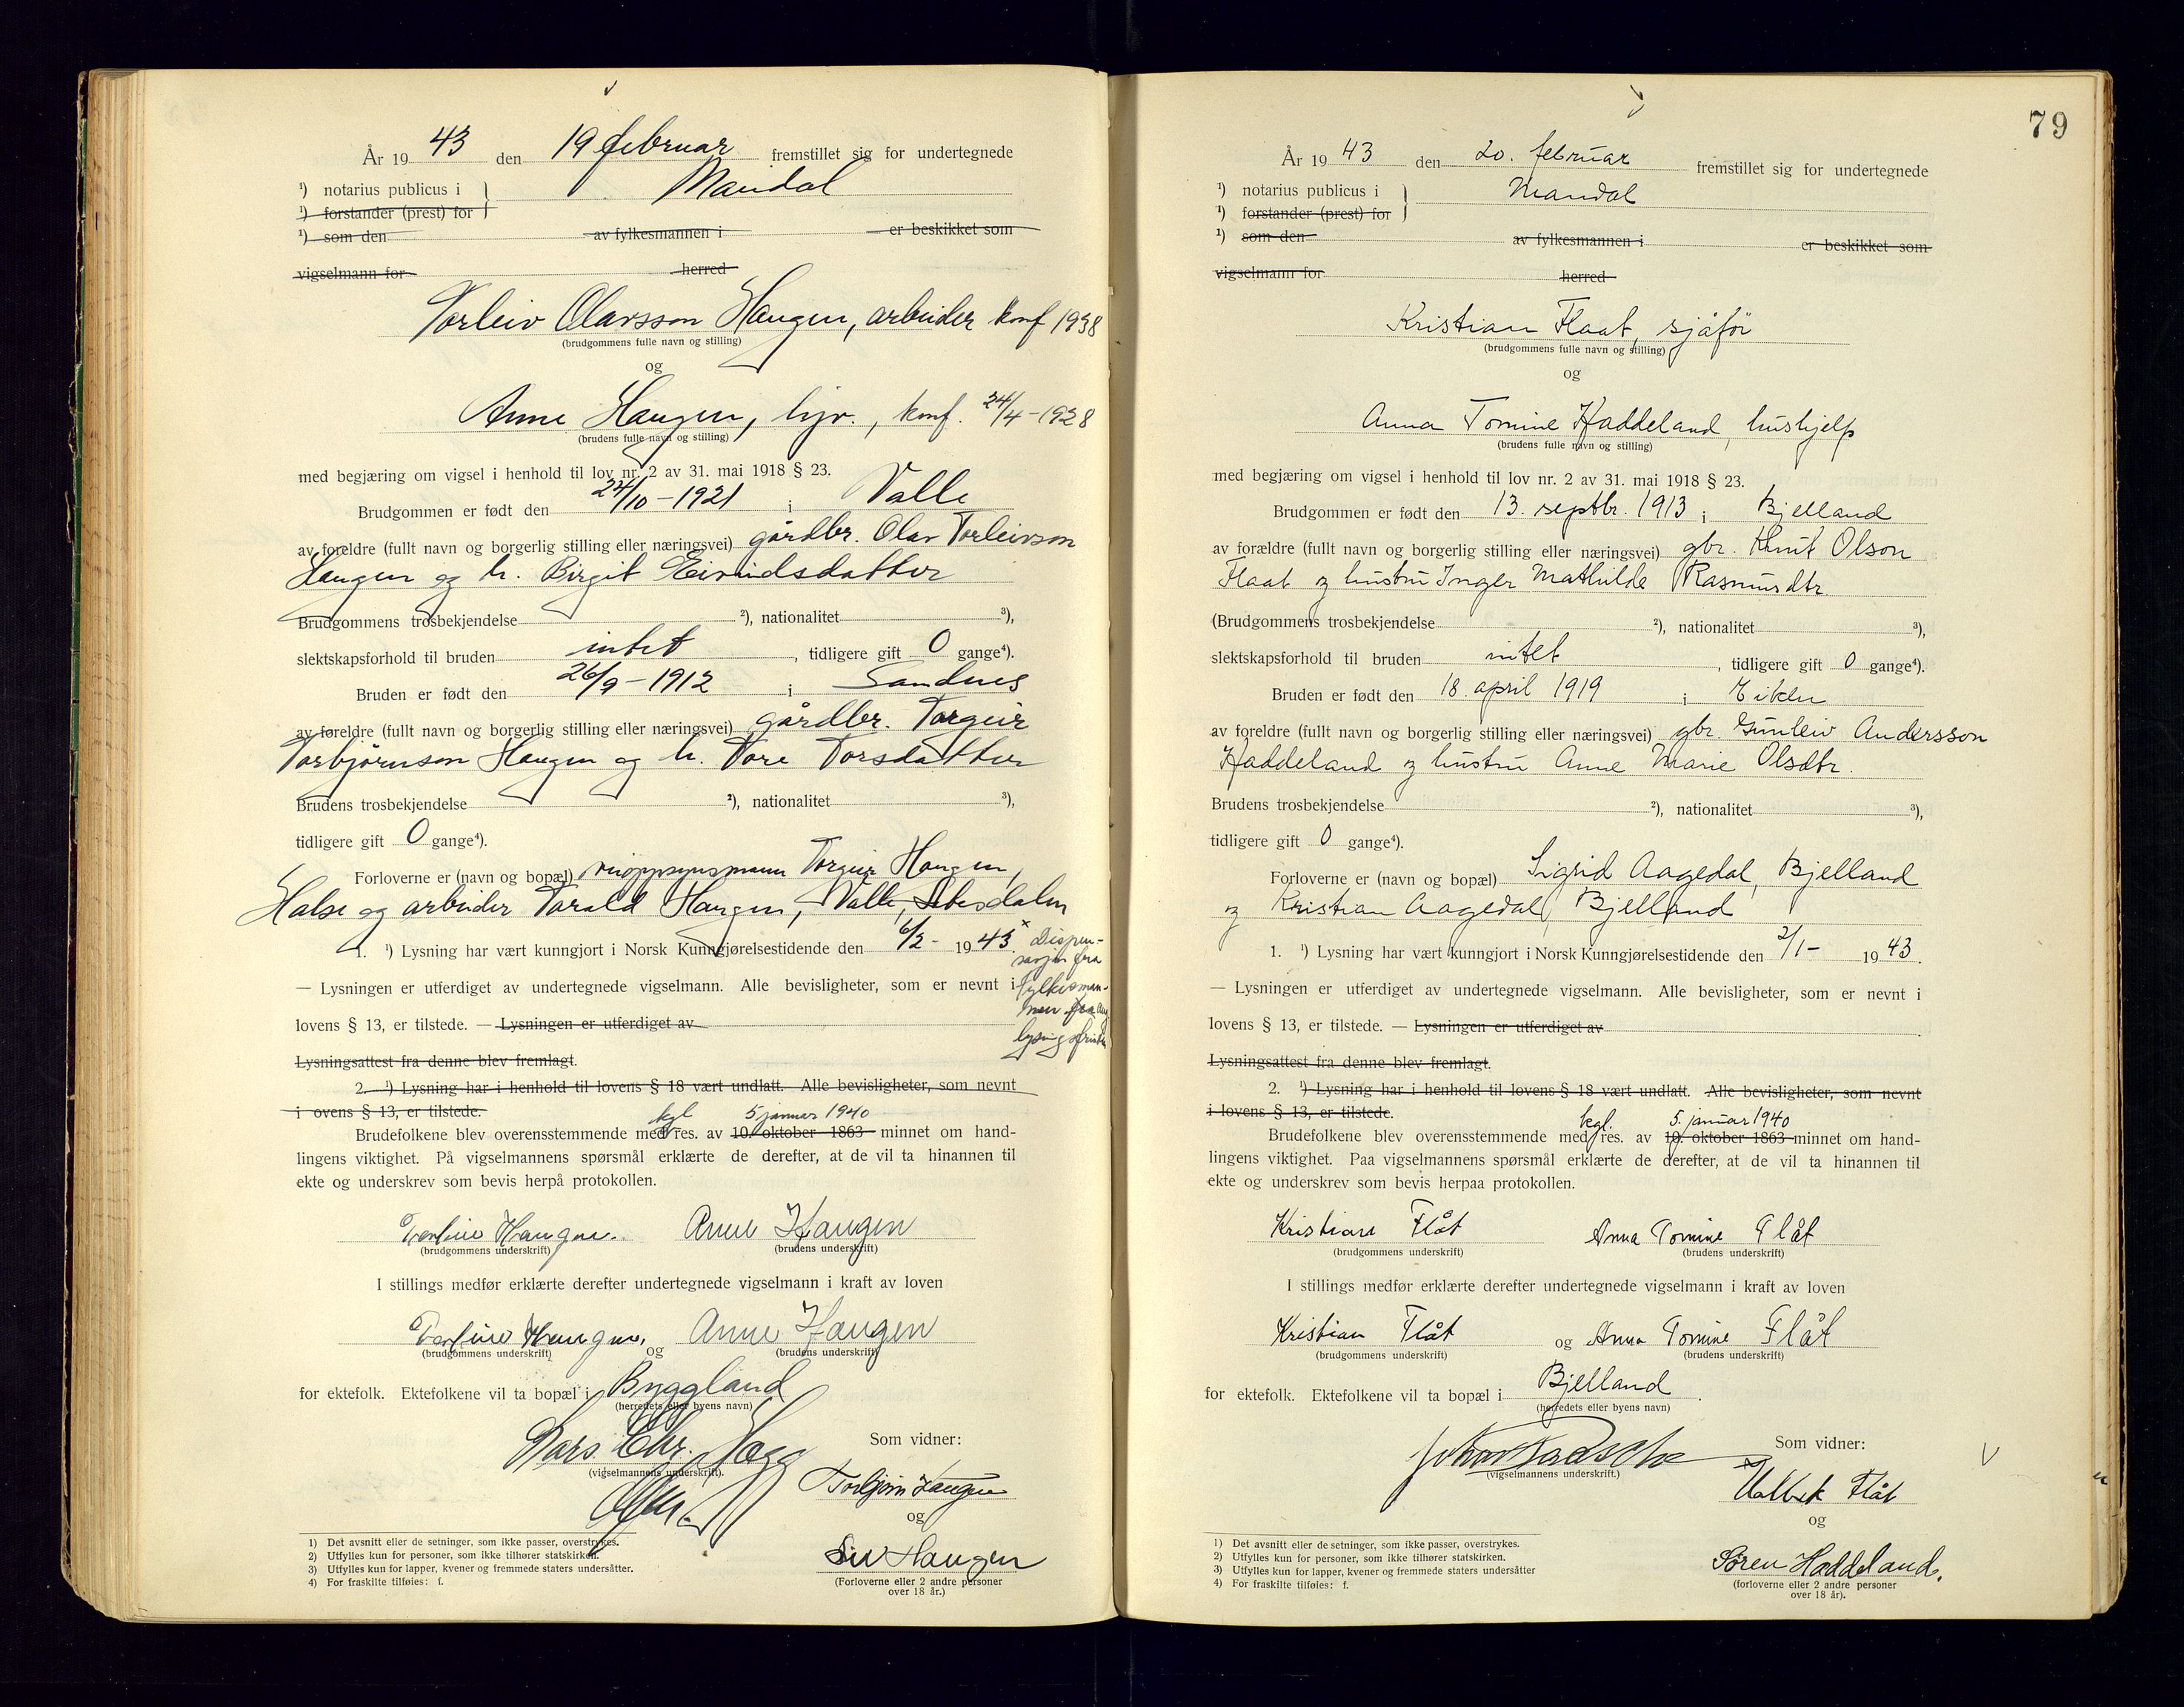 År 1943 den 19 februar fremstillet sig for undertegnede
¹) notarius publicus i Mandal
¹) forstander (prest) for
¹) som den av fylkesmannen i er beskikket som
vigselmann for herred
Torleiv Olavsson Haugen, arbeider konf 1938
(brudgommens fulle navn og stilling)
og
Anne Haugen, hjv., konf. 24/4-1928
(brudens fulle navn og stilling)
med begjæring om vigsel i henhold til lov nr. 2 av 31. mai 1918 § 23.
Brudgommen er født den 24/10-1921 i Valle
av foreldre (fullt navn og borgerlig stilling eller næringsvei) gårdbr. Olav Torleivson
Haugen og h. Birgit Eivindsdatter
Brudgommens trosbekjendelse ²), nationalitet ³),
slektskapsforhold til bruden intet, tidligere gift 0 gange⁴).
Bruden er født den 26/9-1912 i Sandnes
av foreldre (fullt navn og borgerlig stilling eller næringsvei) gårdbr. Torgeir
Torbjørnson Haugen og h. Tore Torsdatter
Brudens trosbekjendelse ²), nationalitet ³),
tidligere gift 0 gange⁴).
Forloverne er (navn og bopæl) Torgeir Haugen,
Halse og arbeider Torald Haugen, Valle, Setesdalen
1. ¹) Lysning har vært kunngjort i Norsk Kunngjørelsestidende den 6/2- 1943. x Dispen-
sasjon fra
— Lysningen er utferdiget av undertegnede vigselmann. Alle bevisligheter, som er nevnt i fylkesman-
nen
lovens § 13, er tilstede. — Lysningen er utferdiget av
lysningsfristen
Lysningsattest fra denne blev fremlagt.
2. ¹) Lysning har i henhold til lovens § 18 vært undlatt. Alle bevisligheter, som nevnt
i ovens § 13, er tilstede.
kgl 5 januar 1940
Brudefolkene blev overensstemmende med res. av 10. oktober 1863 minnet om hand-
lingens viktighet. På vigselmannens spørsmål erklærte de derefter, at de vil ta hinannen til
ekte og underskrev som bevis herpå protokollen.
Torleiv Haugen. Anne Haugen
(brudgommens underskrift) (brudens underskrift)
I stillings medfør erklærte derefter undertegnede vigselmann i kraft av loven
Torleiv Haugen, og Anne Haugen
(brudgommens underskrift) (brudens underskrift)
for ektefolk. Ektefolkene vil ta bopæl i Byggland
(herredets eller byens navn)
Som vidner:
(vigselmannens underskrift).
Torbjørn Haugen
og
Siv Haugen
(Forloverne eller 2 andre personer
over 18 år.)
1) Det avsnitt eller de setninger, som ikke passer, overstrykes.
2) Utfylles kun for personer, som ikke tilhører statskirken.
3) Utfylles kun for lapper, kvener og fremmede staters undersåtter.
4) For fraskilte tilføies: f.
79
År 1943 den 20. februar fremstillet sig for undertegnede
¹) notarius publicus i Mandal
¹) forstander (prest) for
¹) som den av fylkesmannen i er beskikket som
vigselmann for herred
Kristian Flaat, sjåfør
(brudgommens fulle navn og stilling)
og
Anna Tomine Haddeland, hushjelp
(brudens fulle navn og stilling)
med begjæring om vigsel i henhold til lov nr. 2 av 31. mai 1918 § 23.
Brudgommen er født den 13. septbr. 1913 i Bjelland
av forældre (fullt navn og borgerlig stilling eller næringsvei) gbr. Knut Olson
Flaat og hustru Inger Mathilde Rasmusdtr.
(Brudgommens trosbekjendelse ²), nationalitet ³),
slektskapsforhold til bruden intet, tidligere gift 0 gange⁴).
Bruden er født den 18. april 1919 i Eiken
av foreldre (fullt navn og borgerlig stilling eller næringsvei) gbr. Gunleiv Andersson
Haddeland og hustru Anne Marie Olsdtr.
Brudens trosbekjendelse ²), nationalitet ³),
tidligere gift 0 gange⁴).
Forloverne er (navn og bopæl) Sigrid Aagedal, Bjelland
og Kristian Aagedal, Bjelland
1. ¹) Lysning har vært kunngjort i Norsk Kunngjørelsestidende den 2/1- 1943.
— Lysningen er utferdiget av undertegnede vigselmann. Alle bevisligheter, som er nevnt i
lovens § 13, er tilstede. — Lysningen er utferdiget av
Lysningsattest fra denne blev fremlagt.
2. ¹) Lysning har i henhold til lovens § 18 vært undlatt. Alle bevisligheter, som nevnt
i lovens § 13, er tilstede.
kgl. 5. januar 1940
Brudefolkene blev overensstemmende med res. av 10. oktober 1863 minnet om hand-
lingens viktighet. Paa vigselmannens spørsmål erklærte de derefter, at de vil ta hinannen til
ekte og underskrev som bevis herpaa protokollen.
Kristian Flåt Anna Tomine Flåt
(brudgommens underskrift) (brudens underskrift)
I stillings medfør erklærte derefter undertegnede vigselmann i kraft av loven
Kristian Flåt og Anna Tomine Flåt
(brudgommens underskrift) (brudens underskrift)
for ektefolk. Ektefolkene vil ta bopæl i Bjelland.
(herredets eller byens navn)
Som vidner:
(vigselmannens underskrift.)
Flåt
og
Søren Haddeland.
(forloverne eller 2 andre personer
over 18 år).
1) Det avsnitt eller de setninger, som ikke passer, overstrykes.
2) Utfylles kun for personer, som ikke tilhører statskirken.
3) Utfylles kun for lapper, kvener og fremmede staters undersåtter
4) For fraskilte tilføies: f.